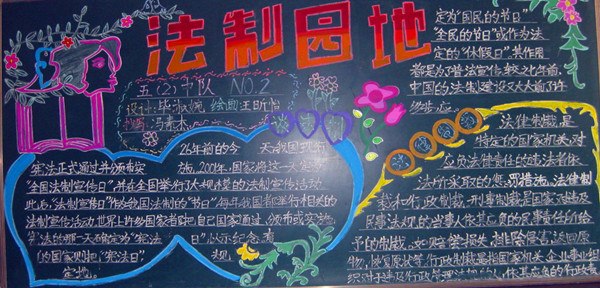 法制园地
五(2)中队 NO.2
设计:毕淑婉 绘图:王昕怡
冯青木
26年前的今天我国现行
宪法正式通过并颁布实
施,2001年,国家将这一天定为
"全国法制宣传日",并在全国举行了大规模的法制宣传活动
此后"法制宣传日"作为我国法制的"节日"每年我国都举行相关的
法制宣传活动.世界上许多国家都把自己国家通过、颁布或实施
宪法的那一天确定为"宪法日"以示纪念,有
的国家则把"宪法日"规
定为
定为"国民的节日"
"全民的节日"或作为法
定的"休假日".其作用
都是为了普法宣传.较26年前,
中国的法制建设又大大前了许
多步.
法律制裁,是
特定的国家机关对
应负法律责任的违法者依
法所采取的惩罚措施.法律制
裁和行政制裁.刑事制裁是国家对违反
民事法规的当事人依其应负的民事责任所给
予的制裁.如赔偿损失,排除侵害,返回原
物,恢复原状等.行政制裁是指国家机关、企业事业组
织对违反行政管理法规的人,依其应负的行政责